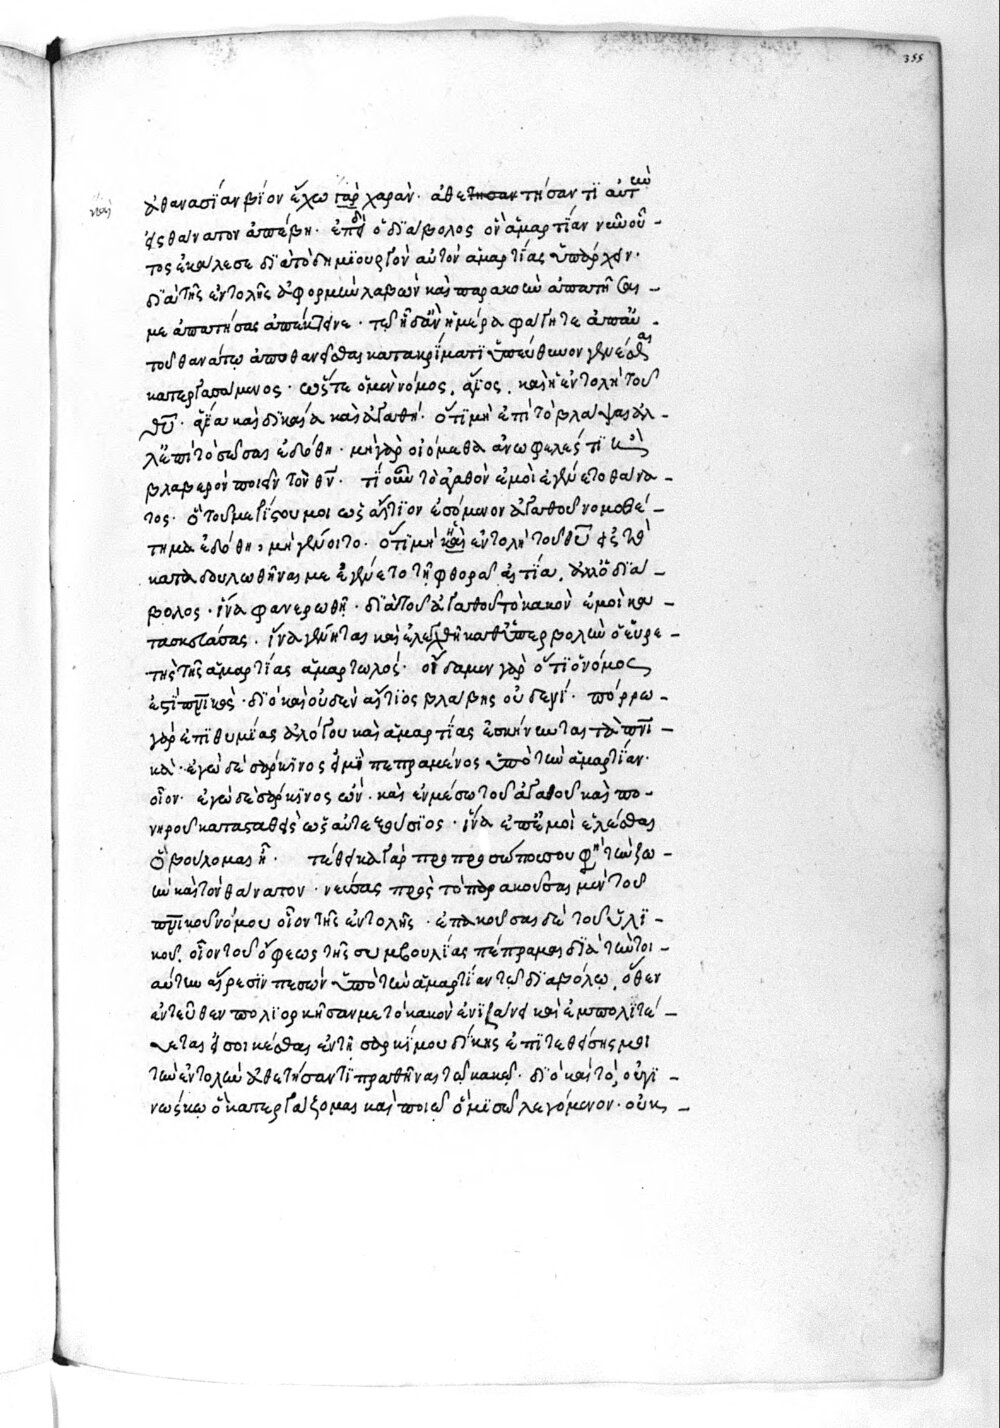 355
ἀθανασίαν βίον ἔχω γὰρ χαράν· ἀθετησαν τήσαντι αὐτὴν
εἰς θάνατον ἀπέβη· ἐπεὶ δὲ ὁ διάβολος ὃν ἁμαρτίαν νῦν οὗ-
τος ἐκάλεσε διὰ τὸ δημιουργὸν αὐτὸν ἁμαρτίας ὑπάρχειν·
διὰ τῆς ἐντολῆς ἀφορμὴν λαβὼν καὶ παρακοὴν ἀπατήσας-
με ἀπατήσας ἀπέκτεινε· τῶ ἧ δ' ἂν ἡμέρα φάγητε ἀπ' αὐ-
τοῦ θανάτω ἀποθανεῖσθαι κατακρίματι ὑπεύθυνον γενέσθαι
κατεργασάμενος· ὥστε ὁ μὲν νόμος, ἅγιος, καὶ ἡ ἐντολὴ τοῦ
θυ· ἁγία καὶ δικαία καὶ ἀγαθή· ὅτι μὴ ἐπὶ τὸ βλάψαι ἀλ-
λ' ἐπὶ τὸ σῶσαι ἐδόθη· μὴ γὰρ οἰόμεθα ἀνωφελές τι καὶ
βλαβερὸν ποιεῖν τὸν θν· τί οὖν τὸ ἀγαθὸν ἐμοὶ ἐγένετο θάνα-
τος· ὃ τοῦ μεγίστου μοι ὡς αἴτιον ἐσόμενον ἀγαθοῦ νομοθέ-
τημα ἐδόθη, μὴ γένοιτο· ὅτι μὴ καὶ ἡ ἐντολὴ τοῦ θυ εἰς τὸ
καταδουλωθῆναι με ἐγένετο τῆ φθορᾶ αἰτία, ἀλλ' ὁ διά-
βολος· ἵνα φανερωθῆ· διὰ τοῦ ἀγαθοῦ τὸ κακὸν ἐμοὶ κα-
τασκευάσας· ἵνα γένηται καὶ ἐλεγχθῆ καθ' ὑπερβολὴν ὁ εὑρε-
τὴς τῆς ἁμαρτίας ἁμαρτωλός· οἴδαμεν γὰρ ὅτι ὁ νόμος
ἐστὶ πνικός· διὸ καὶ οὐδὲν αἴτιος βλάβης οὐδενί· πόρρω
γὰρ ἐπιθυμίας ἀλόγου καὶ ἁμαρτίας ἐσκήνωται τὰ πνι-
κά· ἐγὼ δὲ σάρκινος εἰμὶ πεπραμένος ὑπὸ τὴν ἁμαρτίαν·
οἷον· ἐγὼ δὲ σάρκινος ὤν· καὶ ἐν μέσω τοῦ ἀγαθοῦ καὶ πο-
νηροῦ κατασταθεὶς ὡς αὐτεξούσιος· ἵνα ἐπ' ἐμοὶ ἑλέσθαι
ὃ βούλομαι ἦ· τέθεικα γὰρ πρὸ προσώπου σου φη τὴν ζω-
ὴν καὶ τὸν θάνατον· νεύσας πρὸς τὸ παρακοῦσαι μὲν τοῦ
πνικοῦ νόμου οἷον τῆς ἐντολῆς· ἐπακοῦσαι δὲ τοῦ ὑλι-
κοῦ, οἷον τοῦ ὄφεως τῆς συμβουλίας πέπραμαι διὰ τὴν τοι-
αύτην αἵρεσιν πεσὼν ὑπὸ τὴν ἁμαρτίαν τῶ διαβόλω, ὅθεν
ἐντεῦθεν πολιορκῆσάν με τὸ κακὸν ἐνιζάνει καὶ ἐμπολιτεύ-
εται εἰσοικέσθαι ἐν τῆ σαρκί μου δίκης ἐπιτεθείσης μοι
τὴν ἐντολὴν ἀθετήσαντι πραθῆναι τῶ κακῶ· διὸ καὶ τὸ, οὐ γι-
νώσκω ὃ κατεργάζομαι καὶ ποιῶ ὃ μισῶ λεγόμενον· οὐκ-